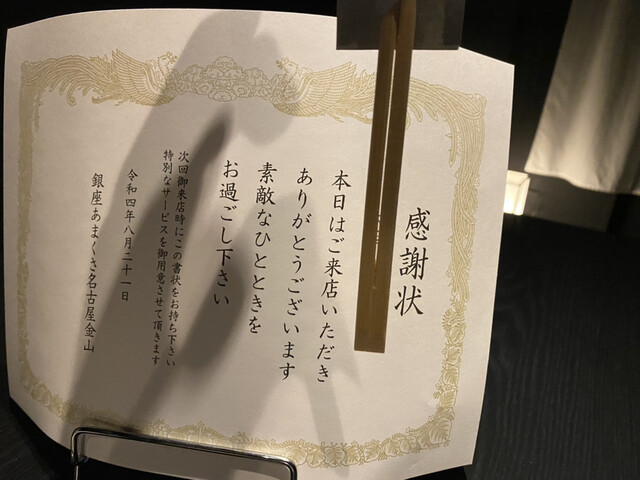 感謝状
本日はご来店いただき
ありがとうございます
素敵なひとときを
お過ごし下さい
次回御来店時にこの書状をお持ち下さい
特別なサービスを御用意させて頂きます
令和四年八月二十一日
銀座あまくさ名古屋金山